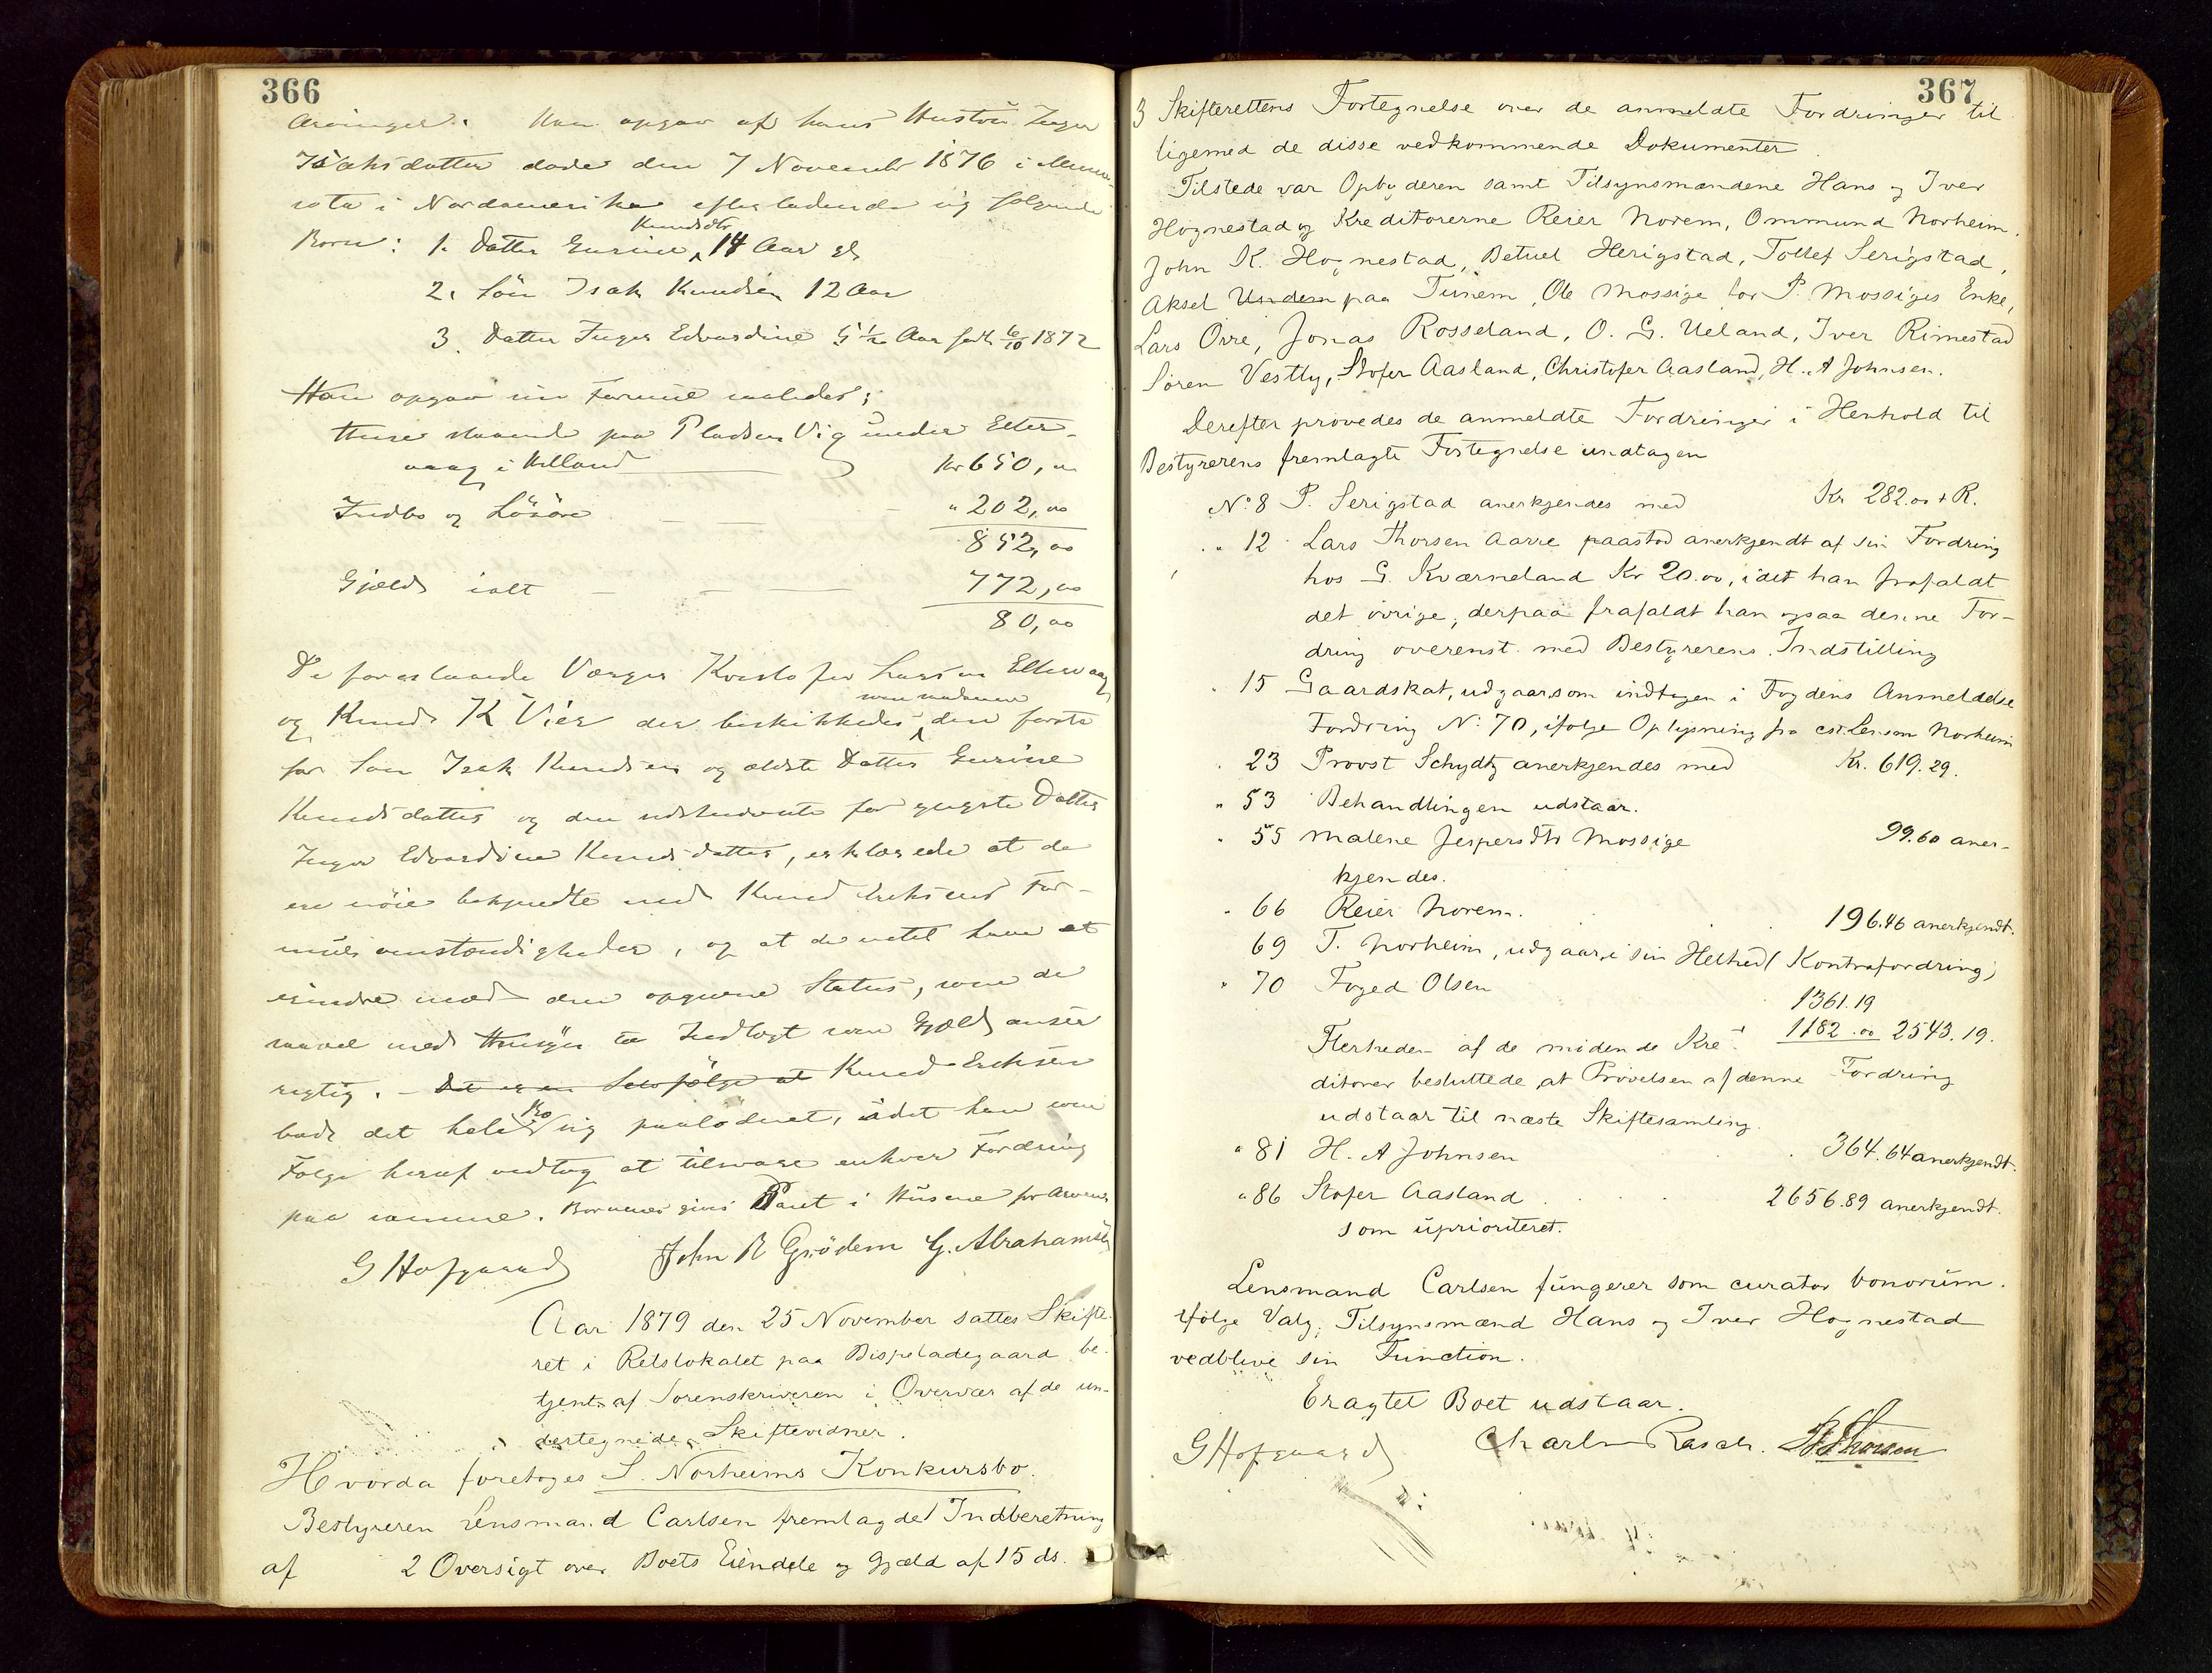 366
Arvinger. Han opgav at hans Hustru Inger
Isaksdatter døde den 7 November 1876 i Minne-
sota i Nordamerika efterladende sig følgende
Børn: 1. Datter Gurine Knudsdtr 14 Aar gl
2. Søn Isak Knudsen 12 Aar
3. Datter Inger Edvardine 5½ Aar født 6/10 1872
Han opgav sin Formue saaledes:
Huse staaende paa Pladsen Vig under Elter-
vaag i Kr 650,00
Indbo og Løsøre " 202,00
852,00
Gjeld ialt 772,00
80,00
De foreslaaede Værger Kristofer Larsen Eltervaag
og Knud K Vier der beskikkedes, den første
for Søn Isak Knudsen og ældste Datter Gurine
Knudsdatter og den sidstnævnte for yngste Datter
Inger Edvardine Knudsdatter, erklærede at de
ere nøie bekjendte med Knud Eriksens For-
muesomstændigheder, og at de intet have at
erindre mod den opgivne Status, som de
saavel med Hensyn til Indtægt som Gjeld anser
rigtig. - Det er en Selvfølge at Knud Eriksen
bad det hele Bo sig paalødnet, idet han som
Følge heraf vedtog at tilsvare enhver Fordring
paa samme. Børnenes gives Pant i Husene for Arven
G Hofgaard John R Grödem G. Abrahamsen
Aar 1879 den 25 November sattes Skifte-
ret i Retslokalet paa Bispeladegaard be-
tjent af Sorenskriveren i Overvær af de un-
dertegnede Skiftevidner.
Hvorda foretoges S. Norheims Konkursbo.
Bestyreren Lensmand Carlsen fremlagde 1 Indberetning
af 2 Oversigt over Boets Eiendele og Gjæld af 15 ds.
367
3 Skifterettens Fortegnelse over de anmeldte Fordringer til
ligemed de disse vedkommende Dokumenter.
Tilstede var Opbyderen samt Tilsynsmændene Hans og Iver
Hognestad og Kreditorerne Reier Norem, Ommund Norheim.
John K. Hognestad, Betuel Herigstad, Tollef Serigstad,
Aksel Undem paa Tunem, Ole Mossige for P. Mossiges Enke,
Lars Orre, Jonas Rosseland, O. G. Ueland, Iver Rimestad
Søren Vestly, Stofer Aasland, Christofer Aasland, H. A Johnsen.
Derefter prøvedes de anmeldte Fordringer i Henhold til
Bestyrerens fremlagte Fortegnelse undtagen
No: 8 P. Serigstad anerkjendes med Kr 282.00 + R.
" 12 Lars Thorsen Aarre paastod anerkjendt af sin Fordring
hos G. Kværneland Kr 20.00, idet han frafaldt
det øvrige, derpaa frafaldt han ogsaa denne For-
dring overenst. med Bestyrerens Indstilling
" 15 Gaardskat, udgaar som indtagen i Fogdens Anmeldelse
Fordring No: 70, ifølge Oplysning fra Norheim
" 23 Provst Schydtz anerkjendes med Kr. 619.29.
" 53 Behandlingen udstaar.
" 55 Malene Jespersdtr Mossige 99.60 aner-
kjendes.
" 66 Reier Norem. 196.46 anerkjendt.
69 T. Norheim, udgaar i sin Helhed (Kontrafordring)
" 70 Foged Olsen 1361.19
1182.00 2543.19.
Flerheden af de mødende Kre-
ditorer besluttede, at Prøvelsen af denne Fordring
udstaar til næste Skiftesamling.
" 81 H. A Johnsen 364.64 anerkjendt.
" 86 Stofer Aasland 2656.89 anerkjendt.
som uprioriteret.
Lensmand Carlsen fungerer som curator bonorum.
ifølge Valg; Tilsynsmænd Hans og Iver Hognestad
vedblive sin Function.
Eragtet Boet udstaar.
G Hofgaard Charles Rasch. Thorsen